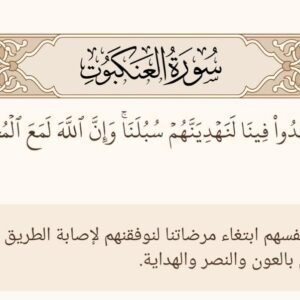 سُورَةُ العَنكَبُوتِ
فِينَا لَنَهۡدِيَنَّهُمۡ سُبُلَنَاۚ وَإِنَّ ٱللَّهَ لَمَعَ
ابتغاء مرضاتنا لنوفقنهم لإصابة الطريق
بالعون والنصر والهداية.